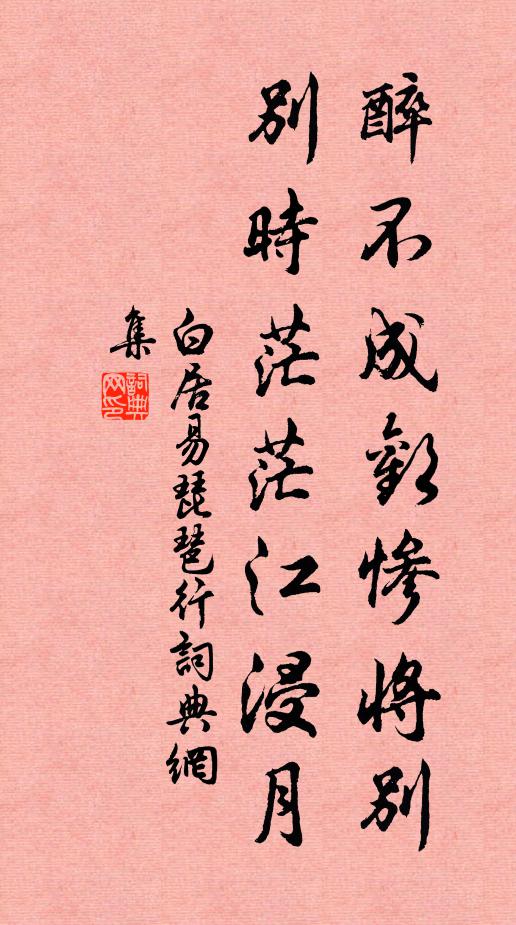 醉不成歡慘將別
別時茫茫江浸月
白居易琵琶行詞典網
集
詞典
网印